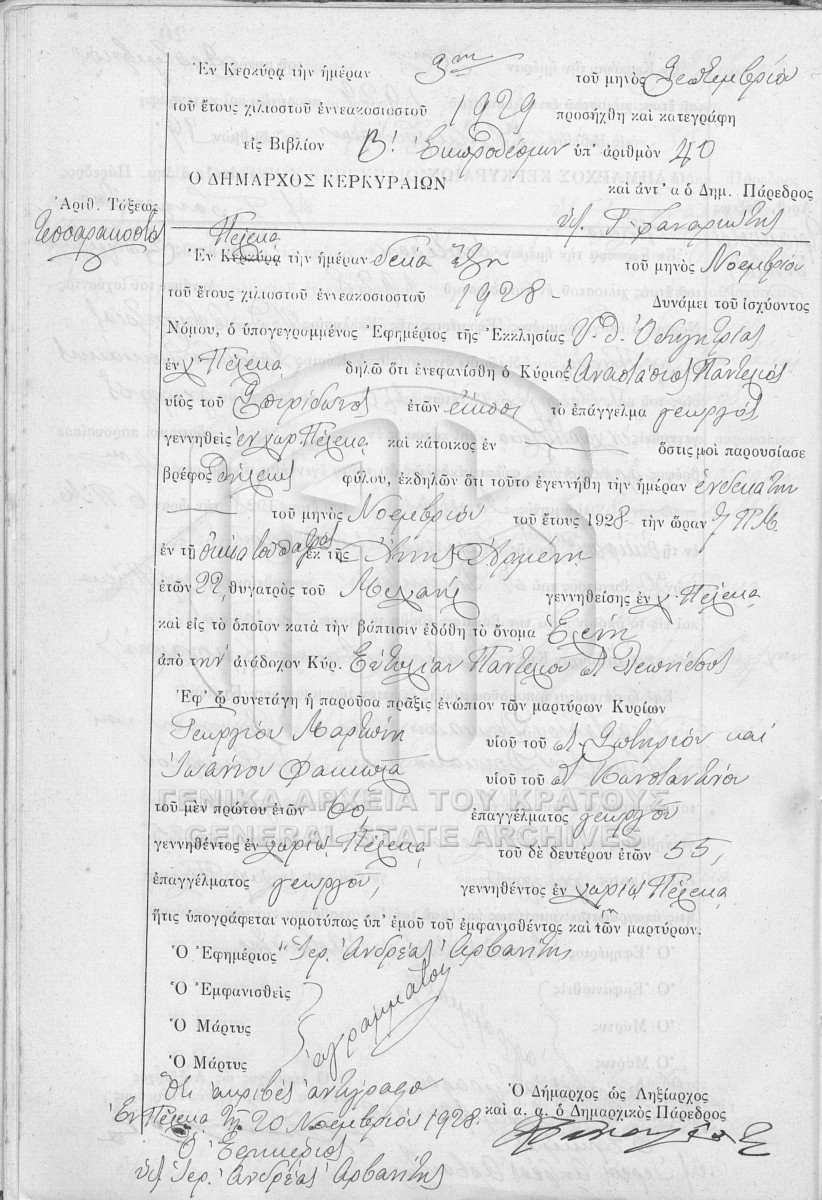 Ἐν Κερκύρᾳ τὴν ἡμέραν 3ην τοῦ μηνὸς Σεπτεμβρίου
τοῦ ἔτους χιλιοστοῦ ἐννεακοσιοστοῦ 1929 προσήχθη καὶ κατεγράφη
εἰς Βιβλίον Β! Ἐκπροθέσμων ὑπ' ἀριθμὸν 40
Ὁ ΔΗΜΑΡΧΟΣ ΚΕΡΚΥΡΑΙΩΝ
καὶ ἀντ' α ὁ Δημ. Πάρεδρος
Ἀριθ. Τάξεως
Τεσσαρακοστὸ
Πέλεκα
Ἐν Κερκύρᾳ τὴν ἡμέραν δέκα ἕξη τοῦ μηνὸς Νοεμβρίου
τοῦ ἔτους χιλιοστοῦ ἐννεακοσιοστοῦ 1928 - Δυνάμει τοῦ ἰσχύοντος
Νόμου, ὁ ὑπογεγραμμένος Ἐφημέριος τῆς Ἐκκλησίας Υ. Θ. Ὁδηγητρίας
ἐν χ Πέλεκα δηλῶ ὅτι ἐνεφανίσθη ὁ Κύριος Ἀναστάσιος Παντελιός
υἱὸς τοῦ Σπιρίδωνος ἐτῶν εἴκοσι τὸ ἐπάγγελμα γεωργός
γεννηθεὶς ἐν χωρ Πέλεκα καὶ κάτοικος ἐν ὅστις μοὶ παρουσίασε
βρέφος θήλεος φύλου, ἐκδηλῶν ὅτι τοῦτο ἐγεννήθη τὴν ἡμέραν ἑνδεκάτην
τοῦ μηνὸς Νοεμβρίου τοῦ ἔτους 1928 τὴν ὥραν 7 Π.Μ.
ἐν τῇ οἰκίᾳ τοῦ πατρὸς ἐκ τῆς
ἐτῶν 22, θυγατρὸς τοῦ Μιχαήλ γεννηθείσης ἐν χ. Πέλεκα
καὶ εἰς τὸ ὁποῖον κατὰ τὴν βάπτισιν ἐδόθη τὸ ὄνομα Ἑλένη
ἀπὸ τὴν ἀνάδοχον Κύρ. Παντελιοῦ
Ἐφ' ᾧ συνετάγη ἡ παροῦσα πρᾶξις ἐνώπιον τῶν μαρτύρων Κυρίων
Γεωργίου Μαρτίνη υἱοῦ τοῦ Σωτηρίου καὶ
Ἰωάννου υἱοῦ τοῦ Κωνσταντίνου
ΓΕΝΙΚΑ ΑΡΧΕΙΑ ΤΟΥ ΚΡΑΤΟΥΣ
τοῦ μὲν πρώτου ἐτῶν 60, ἐπαγγέλματος γεωργοῦ
GENERAL STATE ARCHIVES
γεννηθέντος ἐν χωρίῳ Πέλεκα τοῦ δὲ δευτέρου ἐτῶν 55,
ἐπαγγέλματος γεωργοῦ, γεννηθέντος ἐν χωρίῳ Πέλεκα
ἥτις ὑπογράφεται νομοτύπως ὑπ' ἐμοῦ τοῦ ἐμφανισθέντος καὶ τῶν μαρτύρων.
Ὁ Ἐφημέριος Ἱερ. Ἀνδρέας Ἀρβανίτης
Ὁ Ἐμφανισθεὶς
Ὁ Μάρτυς
ἀγράμματοι
Ὁ Μάρτυς
Ὅτι ἀκριβὲς ἀντίγραφο
Ἐν Πέλεκα τῇ 20 Νοεμβρίου 1928
Ὁ Ἐφημέριος
Ἱερ. Ἀνδρέας Ἀρβανίτης
Ὁ Δήμαρχος ὡς Ληξίαρχος
καὶ α. α. ὁ Δημαρχικὸς Πάρεδρος